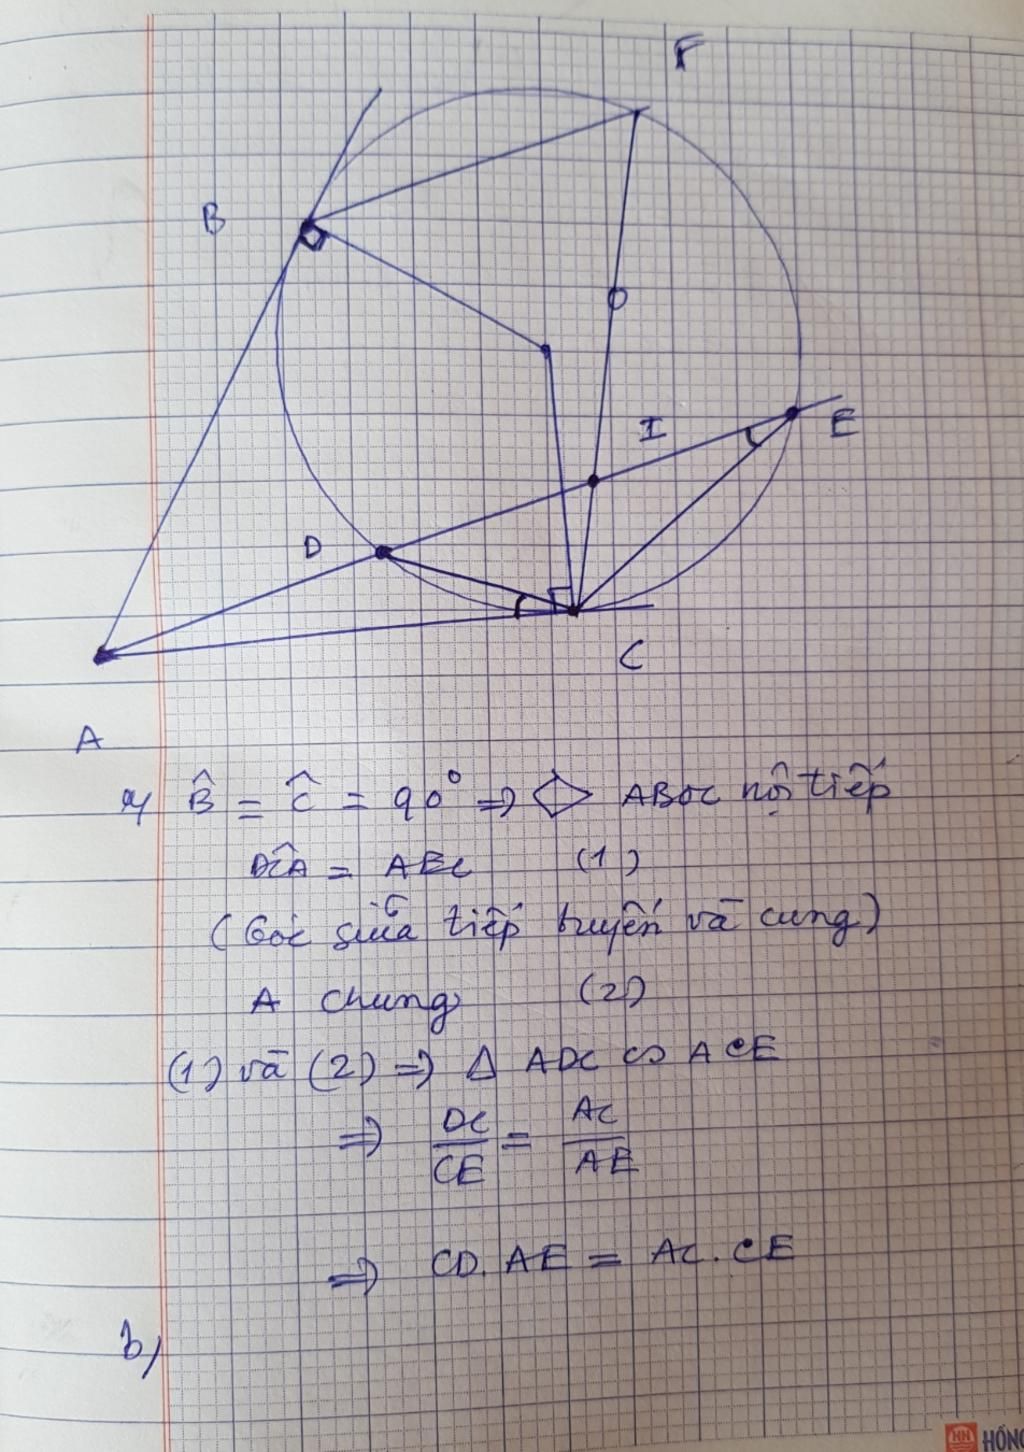 F
B
O
I
E
D
C
A
a/ B̂ = Ĉ = 90° => ◇ ABOC nội tiếp
DĈA = AEC (1)
(Góc giữa tiếp tuyến và cung)
A chung (2)
(1) và (2) => Δ ADC ∽ ACE
=> DC/CE = AC/AE
=> CD. AE = AC. CE
b/
HN HỒNG